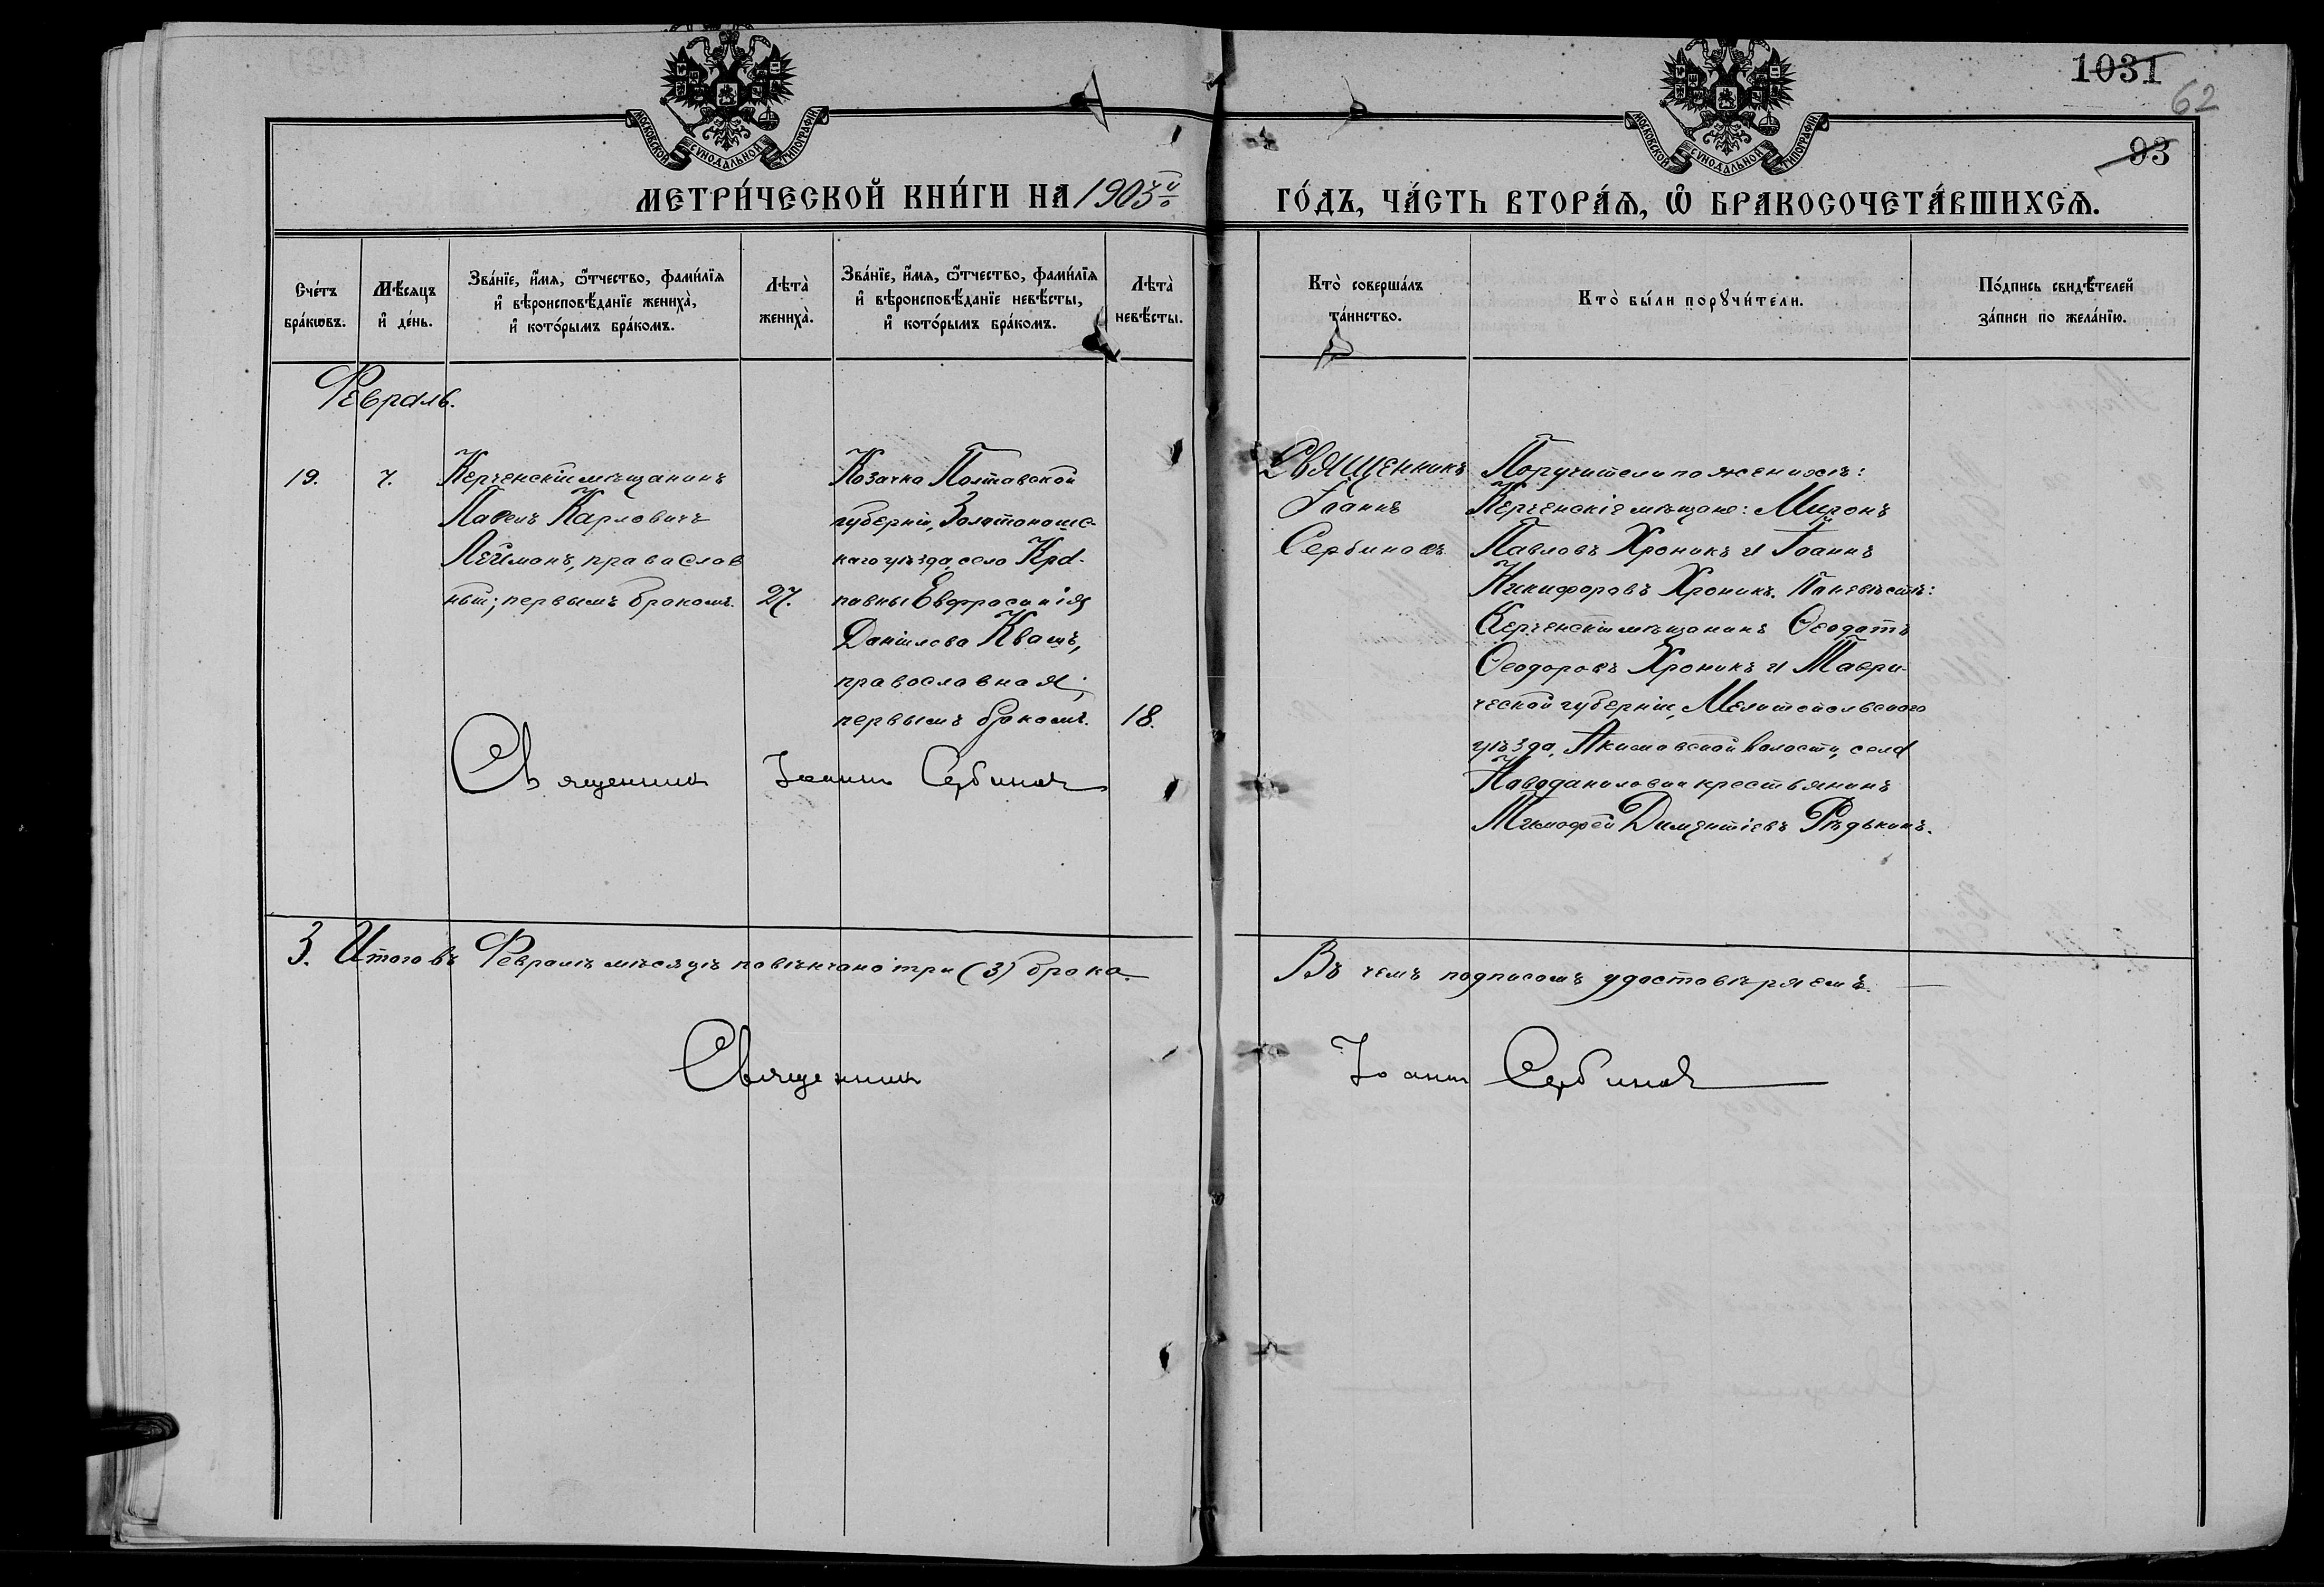 1031
62
93
МОСКОВСКОЙ СУНОДАЛЬНОЙ ТИПОГРАФІИ
МОСКОВСКОЙ СУНОДАЛЬНОЙ ТИПОГРАФІИ
МЕТРИ́ЧЕСКОЙ КНИ́ГИ НА 1903й
ГО́ДЪ, ЧА́СТЬ ВТОРА́Ѧ, Ѡ҆ БРАКОСОЧЕТА́ВШИХСѦ.
Сче́тъ
бра́кѡвъ.
Мѣ́сяцъ
и҆ де́нь.
Зва́нїе, и҆́мѧ, ѻ҆́тчество, фами́лїѧ
и҆ вѣроисповѣ́данїе жениха̀,
и҆ кото́рымъ бра́комъ.
Лѣта̀
жениха̀.
Зва́нїе, и҆́мѧ, ѻ҆́тчество, фами́лїѧ
и҆ вѣроисповѣ́данїе невѣ́сты,
и҆ кото́рымъ бра́комъ.
Лѣта̀
невѣ́сты.
Кто̀ соверша́лъ
та́инство.
Кто̀ бы́ли порꙋчи́тели.
По́дпись свидѣ́телей
за́писи по жела́нїю.
Февраль.
19.
7.
Керченскій мѣщанинъ
Павелъ Карловичъ
Лейманъ, православ
ный; первымъ бракомъ.
27.
Козачка Полтавской
губерніи, Золотоношс-
каго уѣзда, села Кра-
пивны Евфросинія
Даніилова Квашъ,
православная;
первымъ бракомъ.
18.
Священникъ Іоаннъ Сербиновъ
Священникъ
Іоаннъ
Сербиновъ
Поручители по женихѣ:
Керченскіе мѣщане: Миронъ
Павловъ Хроникъ и Іоаннъ
Никифоровъ Хроникъ. По невѣстѣ:
Керченскій мѣщанинъ Ѳеодотъ
Ѳеодоровъ Хроникъ и Таври-
ческой губерніи, Мелитопольскаго
уѣзда, Акимовской волости, села
Новоданиловки крестьянинъ
Тимофей Диментіевъ Рѣдькинъ.
3. Итого въ Февралѣ мѣсяцѣ повѣнчано три (3) брака.
Въ чемъ подписомъ удостовѣряемъ.
Священникъ
Іоаннъ Сербиновъ